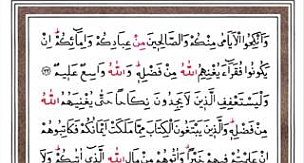 وَاَنْكِحُوا الْاَيَامٰى مِنْكُمْ وَالصَّالِحٖينَ مِنْ عِبَادِكُمْ وَاِمَٓائِكُمْؕ اِنْ
يَكُونُوا فُقَرَٓاءَ يُغْنِهِمُ اللّٰهُ مِنْ فَضْلِهٖؕ وَاللّٰهُ وَاسِعٌ عَلٖيمٌ ﴿٣٢﴾
وَلْيَسْتَعْفِفِ الَّذٖينَ لَا يَجِدُونَ نِكَاحًا حَتّٰى يُغْنِيَهُمُ اللّٰهُ
مِنْ فَضْلِهٖؕ وَالَّذٖينَ يَبْتَغُونَ الْكِتَابَ مِمَّا مَلَكَتْ اَيْمَانُكُمْ فَكَاتِبُوهُمْ
اِنْ عَلِمْتُمْ فٖيهِمْ خَيْرًا وَاٰتُوهُمْ مِنْ مَالِ اللّٰهِ الَّـذٖٓى اٰتٰيكُمْؕ وَلَا